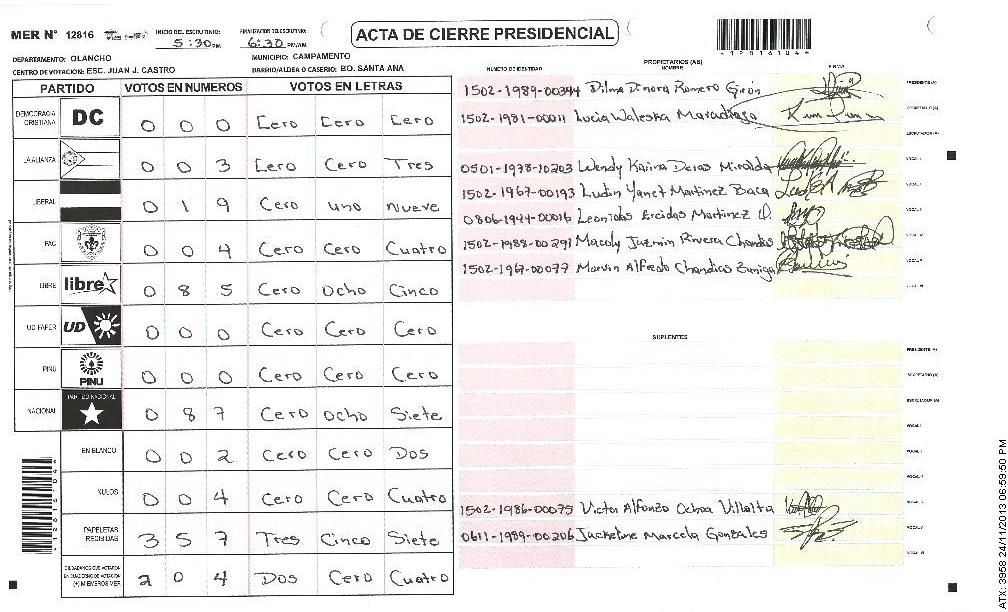 MER N° 12816
INICIO DEL ESCRUTINIO: 5:30 PM
FINALIZACION DEL ESCRUTINIO: 6:30 PM/AM
ACTA DE CIERRE PRESIDENCIAL
DEPARTAMENTO: OLANCHO
MUNICIPIO: CAMPAMENTO
CENTRO DE VOTACION: ESC. JUAN J. CASTRO
BARRIO/ALDEA O CASERIO: BO. SANTA ANA
PARTIDO VOTOS EN NUMEROS VOTOS EN LETRAS
DEMOCRACIA CRISTIANA DC 0 0 0 Cero Cero Cero
LA ALIANZA 0 0 3 Cero Cero Tres
LIBERAL 0 1 9 Cero uno Nueve
PAC 0 0 4 Cero Cero Cuatro
LIBRE libre 0 8 5 Cero Ocho Cinco
UD FAPER UD 0 0 0 Cero Cero Cero
PINU PINU 0 0 0 Cero Cero Cero
NACIONAL PARTIDO NACIONAL 0 8 7 Cero Ocho Siete
EN BLANCO 0 0 2 Cero Cero Dos
NULOS 0 0 4 Cero Cero Cuatro
PAPELETAS RECIBIDAS 3 5 7 Tres Cinco Siete
CIUDADANOS QUE VOTARON EN CUADERNO DE VOTACION (+) MIEMBROS MER 2 0 4 Dos Cero Cuatro
PROPIETARIOS (AS)
NUMERO DE IDENTIDAD NOMBRE FIRMA
1502-1989-00344 Dilma Dinora Romero Girón PRESIDENTE (A)
1502-1981-00011 Lucia Waleska Maradiaga SECRETARIO (A)
ESCRUTADOR (A)
0501-1978-10203 Wendy Karina Deras Miralda VOCAL I
1502-1967-00193 Ludin Yanet Martinez Baca
0806-1944-00016 Leonidas Ercidas Martinez
1502-1988-00291 Macoly Jazmin Rivera Chandias
1502-1967-00077 Marvin Alfredo Chandias Zuniga
SUPLENTES
PRESIDENTE (A)
SECRETARIO (A)
ESCRUTADOR (A)
VOCAL I
1502-1986-00075 Victor Alfonzo Ochoa Villalta
0611-1989-00206 Jackeline Marcela Gonzales
ATX: 3958 24/11/2013 06:59:50 PM